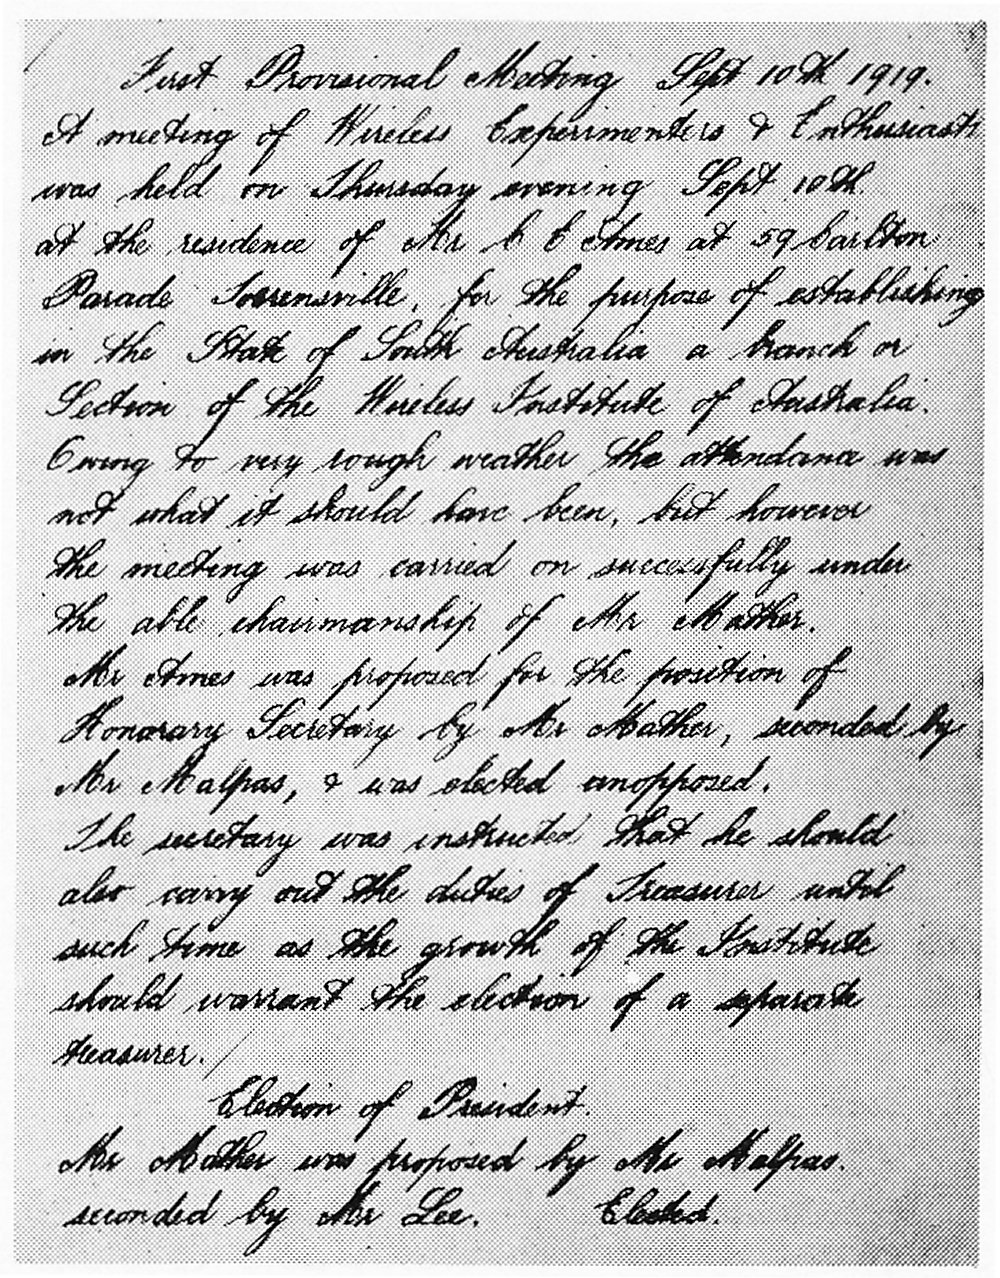 First Provisional Meeting Sept 10th 1919.
A meeting of Wireless Experimenters & Enthusiasts
was held on Thursday evening Sept 10th.
at the residence of Mr C E Ames at 59 Carlton
Parade Torrensville, for the purpose of establishing
in the State of South Australia a branch or
Section of the Wireless Institute of Australia.
Owing to very rough weather the attendance was
not what it should have been, but however
the meeting was carried on successfully under
the able chairmanship of Mr Mather.
Mr Ames was proposed for the position of
Honorary Secretary by Mr Mather, seconded by
Mr Malpas, & was elected unopposed.
The secretary was instructed that he should
also carry out the duties of Treasurer until
such time as the growth of the Institute
should warrant the election of a separate
treasurer.
Election of President.
Mr Mather was proposed by Mr Malpas.
seconded by Mr Lee. Elected.